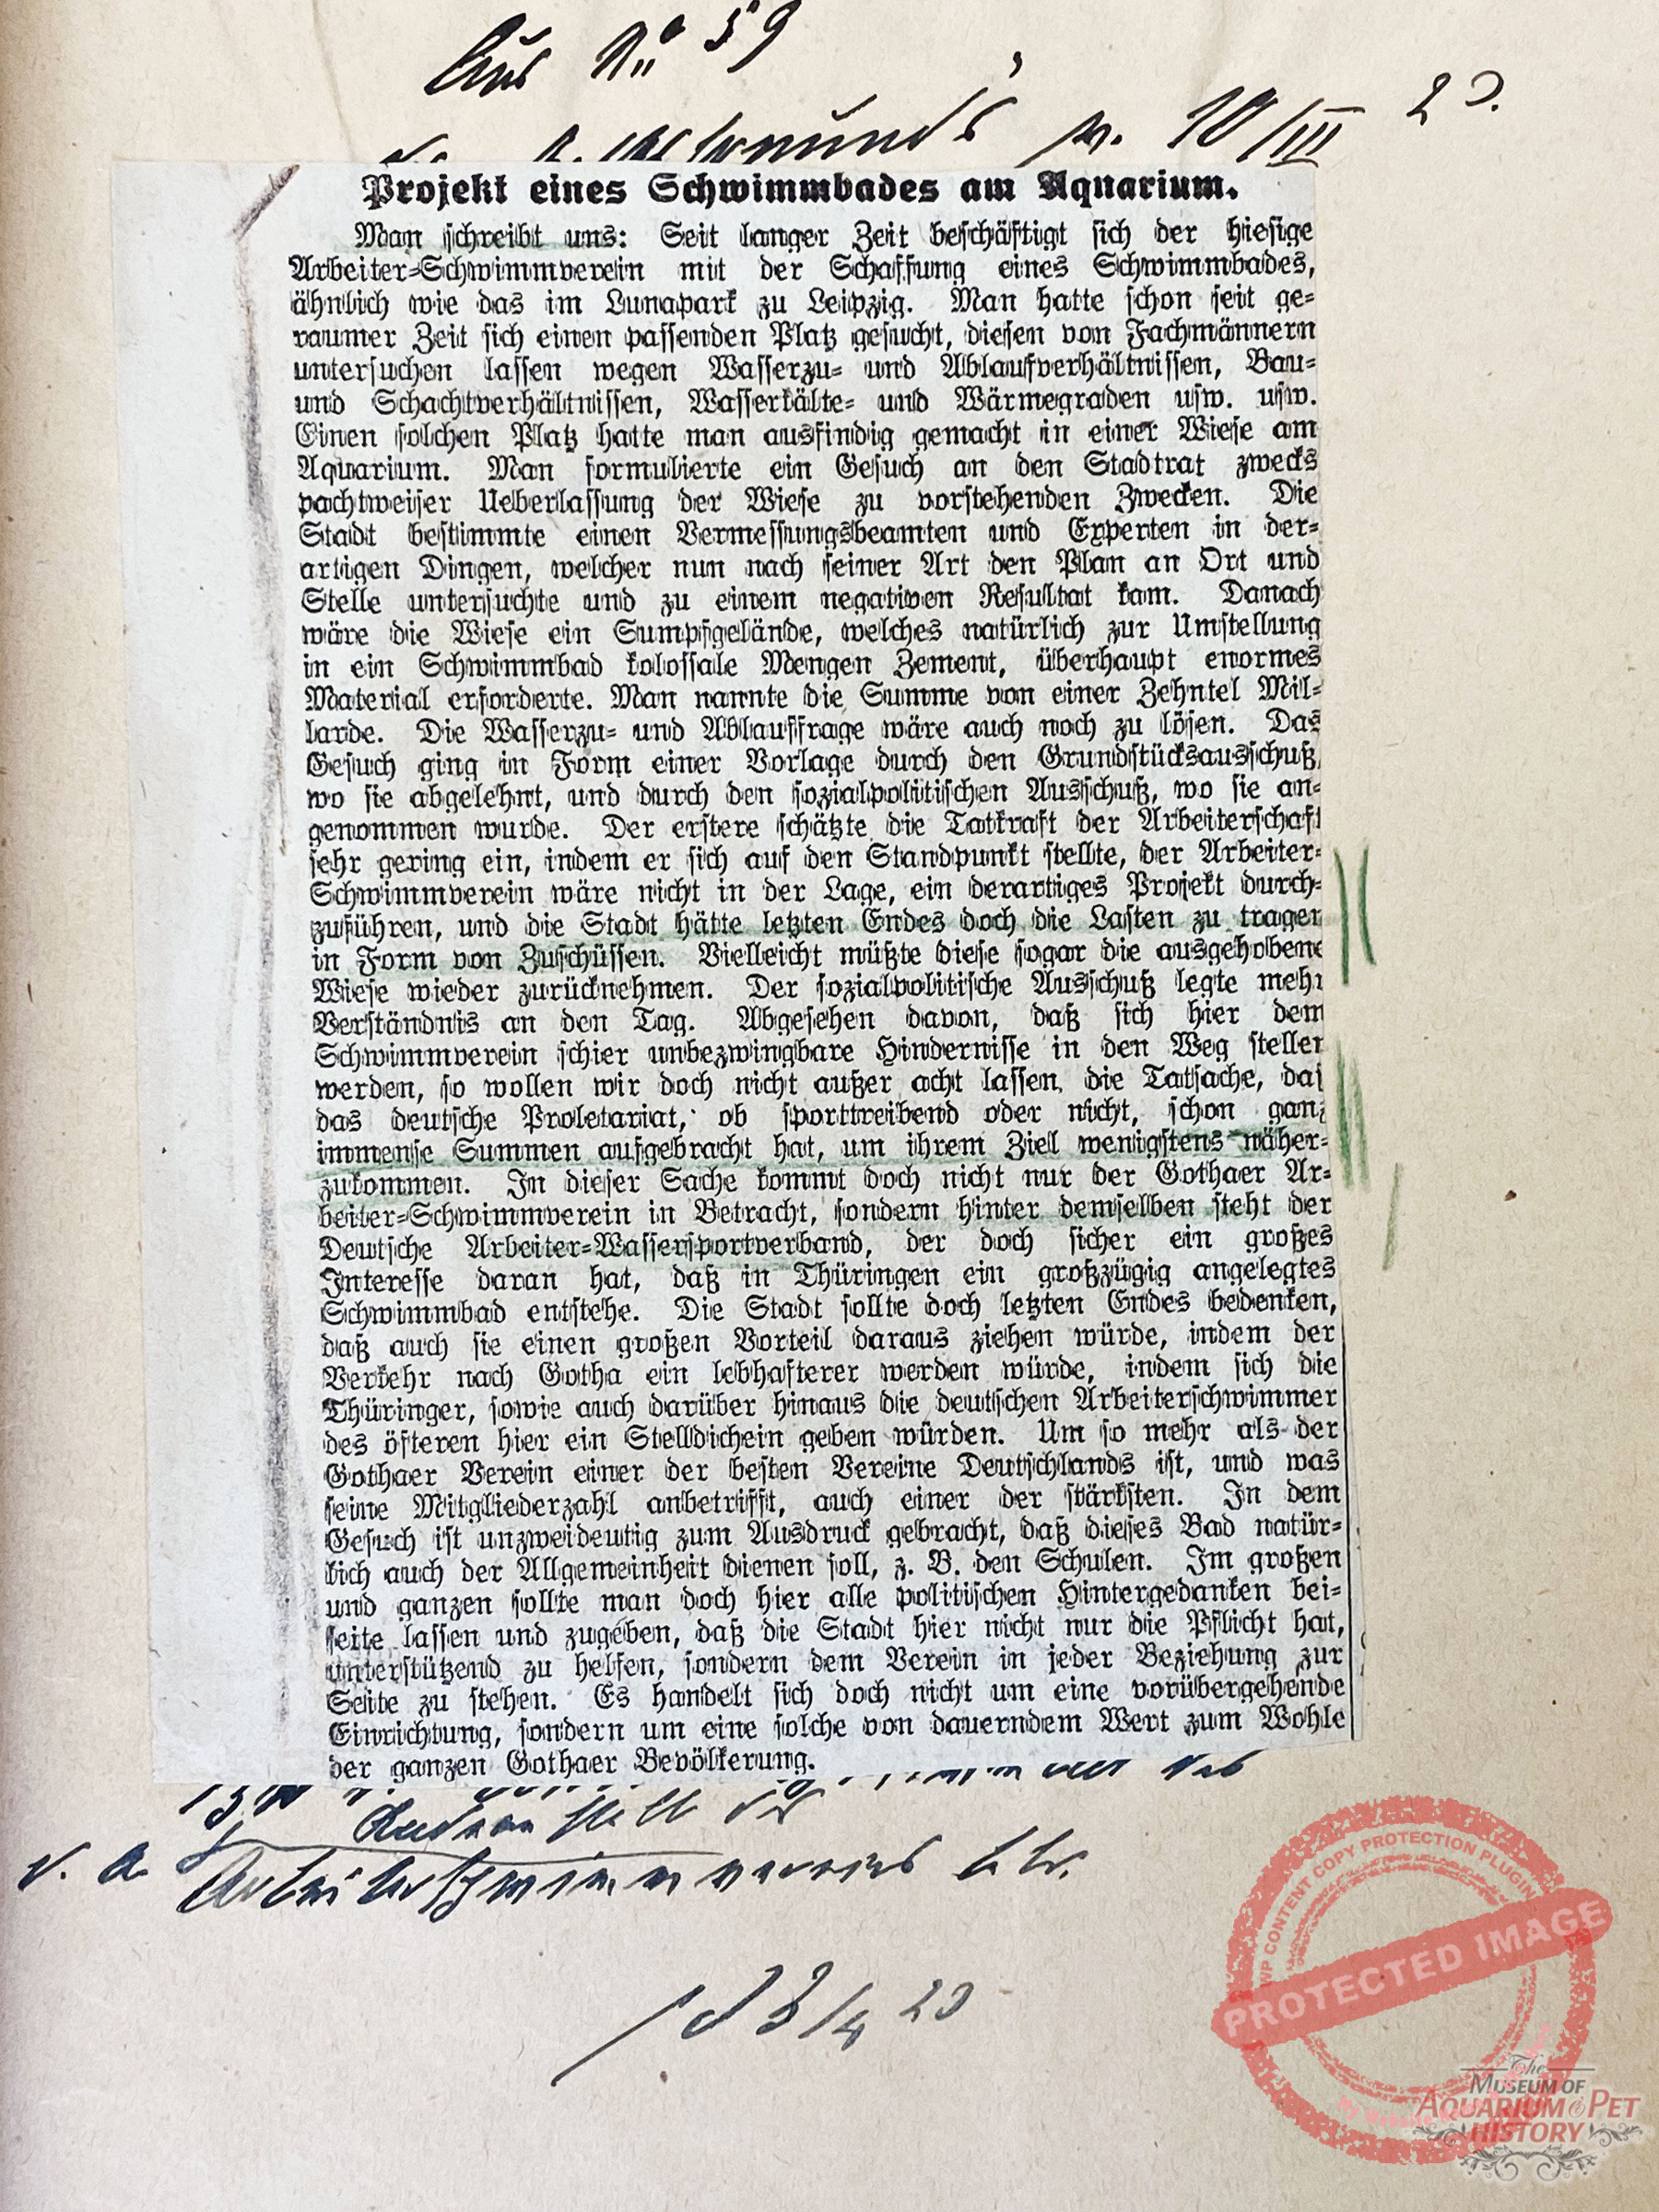 Aus No 59
v. 10/III 23.
Projekt eines Schwimmbades am Aquarium.
Man schreibt uns: Seit langer Zeit beschäftigt sich der hiesige
Arbeiter=Schwimmverein mit der Schaffung eines Schwimmbades,
ähnlich wie das im Lunapark zu Leipzig. Man hatte schon seit ge=
raumer Zeit sich einen passenden Platz gesucht, diesen von Fachmännern
untersuchen lassen wegen Wasserzu= und Ablaufverhältnissen, Bau=
und Schachtverhältnissen, Wasserkälte= und Wärmegraden usw. usw.
Einen solchen Platz hatte man ausfindig gemacht in einer Wiese am
Aquarium. Man formulierte ein Gesuch an den Stadtrat zwecks
pachtweiser Ueberlassung der Wiese zu vorstehenden Zwecken. Die
Stadt bestimmte einen Vermessungsbeamten und Experten in der=
artigen Dingen, welcher nun nach seiner Art den Plan an Ort und
Stelle untersuchte und zu einem negativen Resultat kam. Danach
wäre die Wiese ein Sumpfgelände, welches natürlich zur Umstellung
in ein Schwimmbad kolossale Mengen Zement, überhaupt enormes
Material erforderte. Man nannte die Summe von einer Zehntel Mil=
larde. Die Wasserzu= und Ablauffrage wäre auch noch zu lösen. Das
Gesuch ging in Form einer Vorlage durch den Grundstücksausschuß,
wo sie abgelehnt, und durch den sozialpolitischen Ausschuß, wo sie an=
genommen wurde. Der erstere schätzte die Tatkraft der Arbeiterschaft
sehr gering ein, indem er sich auf den Standpunkt stellte, der Arbeiter=
Schwimmverein wäre nicht in der Lage, ein derartiges Projekt durch=
zuführen, und die Stadt hätte letzten Endes doch die Lasten zu tragen
in Form von Zuschüssen. Vielleicht müßte diese sogar die ausgehobene
Wiese wieder zurücknehmen. Der sozialpolitische Ausschuß legte mehr
Verständnis an den Tag. Abgesehen davon, daß sich hier dem
Schwimmverein schier unbezwingbare Hindernisse in den Weg stellen
werden, so wollen wir doch nicht außer acht lassen, die Tatsache, daß
das deutsche Proletariat, ob sporttreibend oder nicht, schon ganz
immense Summen aufgebracht hat, um ihrem Ziel wenigstens näher=
zukommen. In dieser Sache kommt doch nicht nur der Gothaer Ar=
beiter=Schwimmverein in Betracht, sondern hinter demselben steht der
Deutsche Arbeiter=Wassersportverband, der doch sicher ein großes
Interesse daran hat, daß in Thüringen ein großzügig angelegtes
Schwimmbad entstehe. Die Stadt sollte doch letzten Endes bedenken,
daß auch sie einen großen Vorteil daraus ziehen würde, indem der
Verkehr nach Gotha ein lebhafterer werden würde, indem sich die
Thüringer, sowie auch darüber hinaus die deutschen Arbeiterschwimmer
des öfteren hier ein Stelldichein geben würden. Um so mehr als der
Gothaer Verein einer der besten Vereine Deutschlands ist, und was
seine Mitgliederzahl anbetrifft, auch einer der stärksten. In dem
Gesuch ist unzweideutig zum Ausdruck gebracht, daß dieses Bad natür=
lich auch der Allgemeinheit dienen soll, z. B. den Schulen. Im großen
und ganzen sollte man doch hier alle politischen Hintergedanken bei=
seite lassen und zugeben, daß die Stadt hier nicht nur die Pflicht hat,
unterstützend zu helfen, sondern dem Verein in jeder Beziehung zur
Seite zu stehen. Es handelt sich doch nicht um eine vorübergehende
Einrichtung, sondern um eine solche von dauerndem Wert zum Wohle
der ganzen Gothaer Bevölkerung.
Arbeiterschwimmvereins
3/4 23
WP CONTENT COPY PROTECTION PLUGIN
PROTECTED IMAGE
The
MUSEUM OF
AQUARIUM & PET
HISTORY